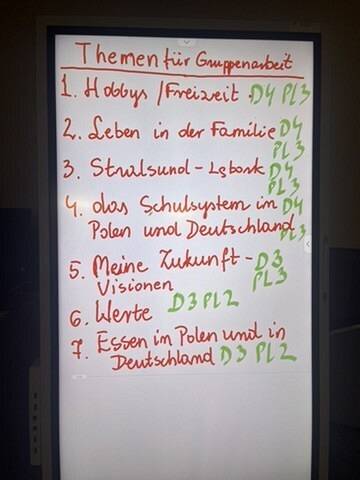 Themen für Gruppenarbeit
1. Hobbys / Freizeit D4 PL3
2. Leben in der Familie D4
PL3
3. Stralsund - D4
PL3
4. das Schulsystem in D4
Polen und Deutschland PL3
5. Meine Zukunft - D3
Visionen PL3
6. Werte D3 PL2
7. Essen in Polen und in
Deutschland D3 PL2